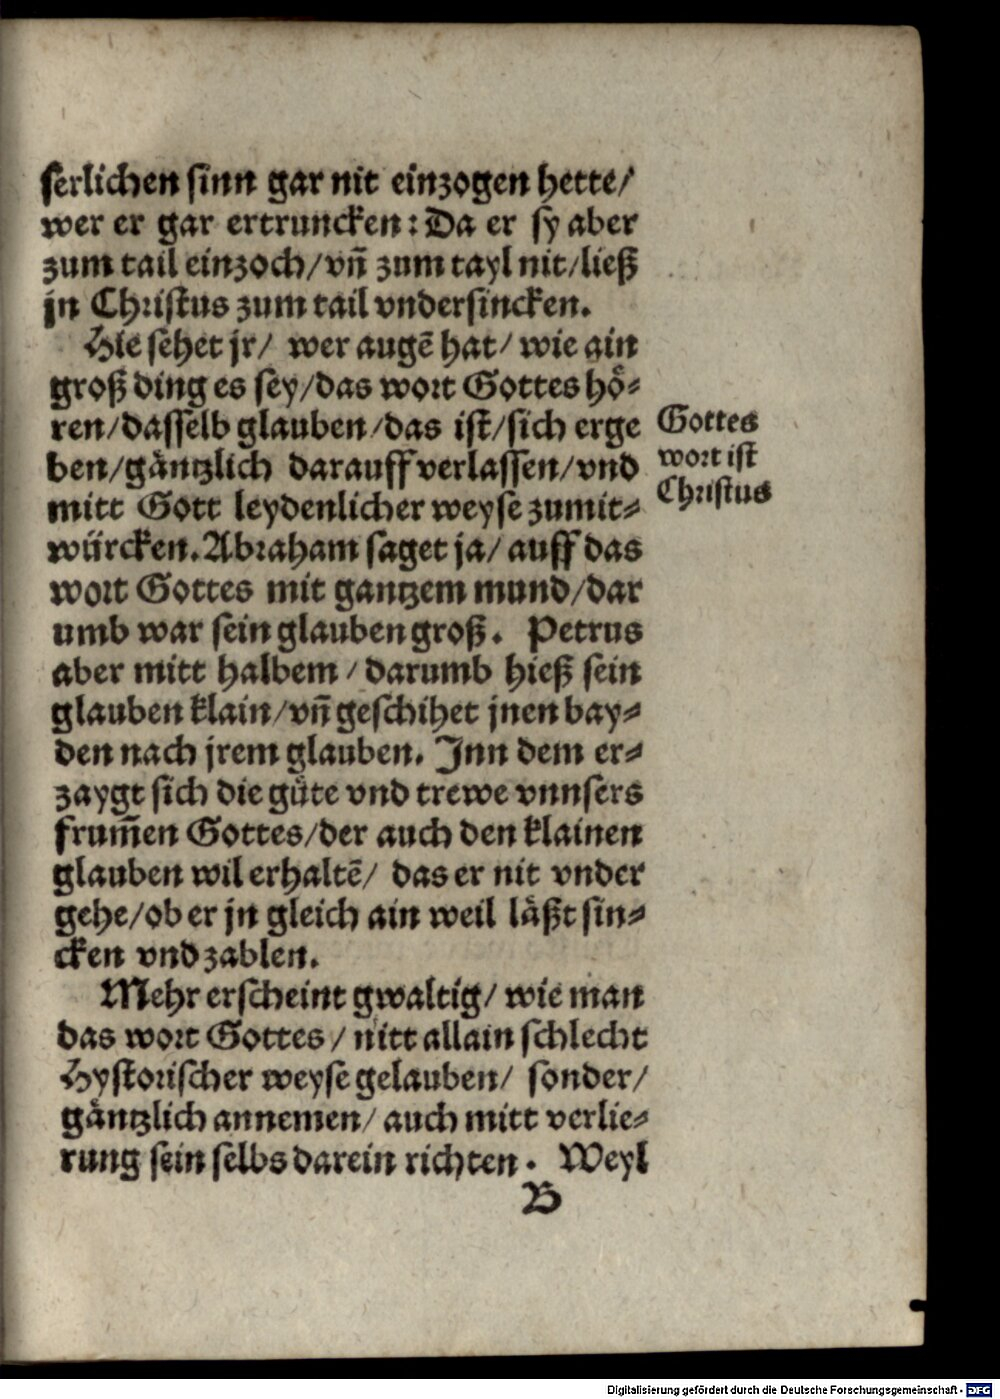 serlichen sinn gar nit einzogen hette/
wer er gar ertruncken: Da er sy aber
zum tail einzoch/vñ zum tayl nit/ließ
jn Christus zum tail vndersincken.
Hie sehet jr/ wer augē hat/ wie ain
groß ding es sey/das wort Gottes hö⸗
ren/dasselb glauben/das ist/sich erge
ben/gäntzlich darauff verlassen/vnd
mitt Gott leydenlicher weyse zumit⸗
würcken. Abraham saget ja/ auff das
wort Gottes mit gantzem mund/dar
umb war sein glauben groß. Petrus
aber mitt halbem/ darumb hieß sein
glauben klain/vñ geschihet jnen bay⸗
den nach jrem glauben. Inn dem er⸗
zaygt sich die güte vnd trewe vnnsers
frum̄en Gottes/der auch den klainen
glauben wil erhaltē/ das er nit vnder
gehe/ob er jn gleich ain weil läßt sin⸗
cken vnd zablen.
Mehr erscheint gwaltig/ wie man
das wort Gottes/ nitt allain schlecht
Hystorischer weyse gelauben/ sonder/
gäntzlich annemen/ auch mitt verlie⸗
rung sein selbs darein richten. Weyl
B
Gottes
wort ist
Christus
Digitalisierung gefördert durch die Deutsche Forschungsgemeinschaft - DFG